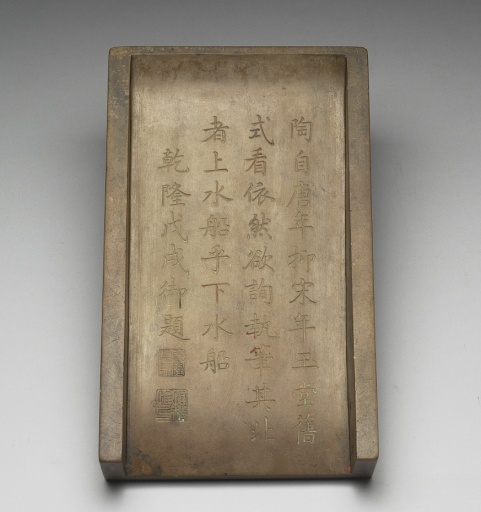 陶自唐年抑宋年玉堂舊
式看依然欲詢執筆其
者上水船乎下水船
乾隆戊戌御題